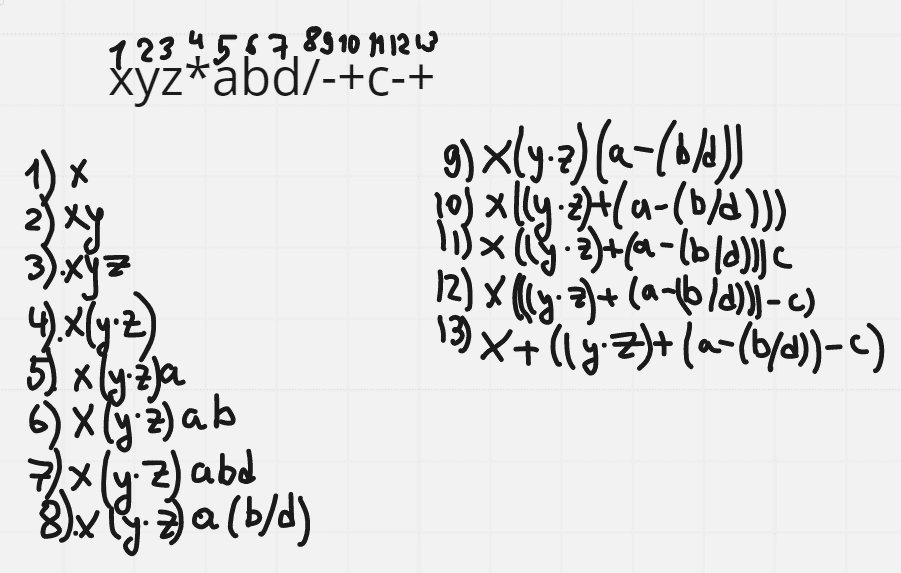 1 2 3 4 5 6 7 8 9 10 11 12 13
xyz*abd/-+c-+
1) x
2) xy
3) xyz
4) x(y·z)
5) x(y·z)a
6) x(y·z)ab
7) x(y·z)abd
8) x(y·z)a(b/d)
9) x(y·z)(a-(b/d))
10) x((y·z)+(a-(b/d)))
11) x((y·z)+(a-(b/d)))c
12) x(((y·z)+(a-(b/d)))-c)
13) x+((y·z)+(a-(b/d))-c)